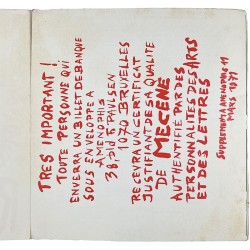 TRES IMPORTANT !
TOUTE PERSONNE QUI
ENVERRA UN BILLET DE BANQUE
SOUS ENVELOPPE A
AMENOPHIS
38, pl d PAVLSEN
1070 BRUXELLES
RECEVRA UN CERTIFICAT
JUSTIFIANT DE SA QUALITE
DE MECENE
AUTHENTIFIE PAR DES
PERSONNALITES DES ARTS
ET DES LETTRES
SUPPLEMENT A AMENOPHIS 11
MARS 1971